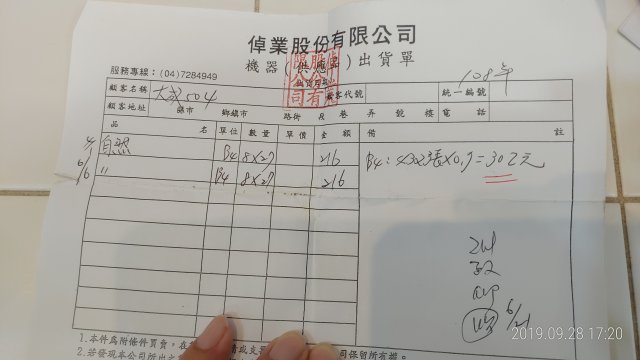 倬業股份有限公司
機器(供應品)出貨單
服務專線：(04)7284949
108年
顧客名稱 大成504 顧客代號 統一編號
顧客地址 縣市 鄉鎮市 路街 段 巷 弄 號 樓 電話
品名 單位 數量 單價 金額 備註
自然 B4 8×27 216 B4：432張×0.7=302元
6/6 〃 B4 8×27 216
6/21
1.本件為附條件買賣，在
2.若發現本公司所出
司保留所有權。
2019.09.28 17:20